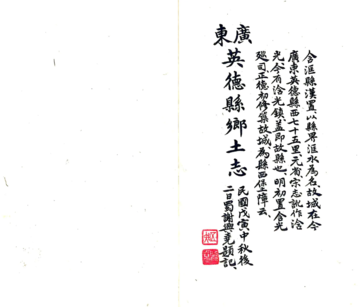 含洭縣漢置以縣界洭水為名故城在今
廣東英德縣西七十五里元省宗志訛作浛
光今有浛光鎮蓋即故縣也明初置含光
巡司正德初修築故城為縣西保障云
廣東
英德縣鄉土志
民國戊寅中秋後
二日蜀謝興堯題記